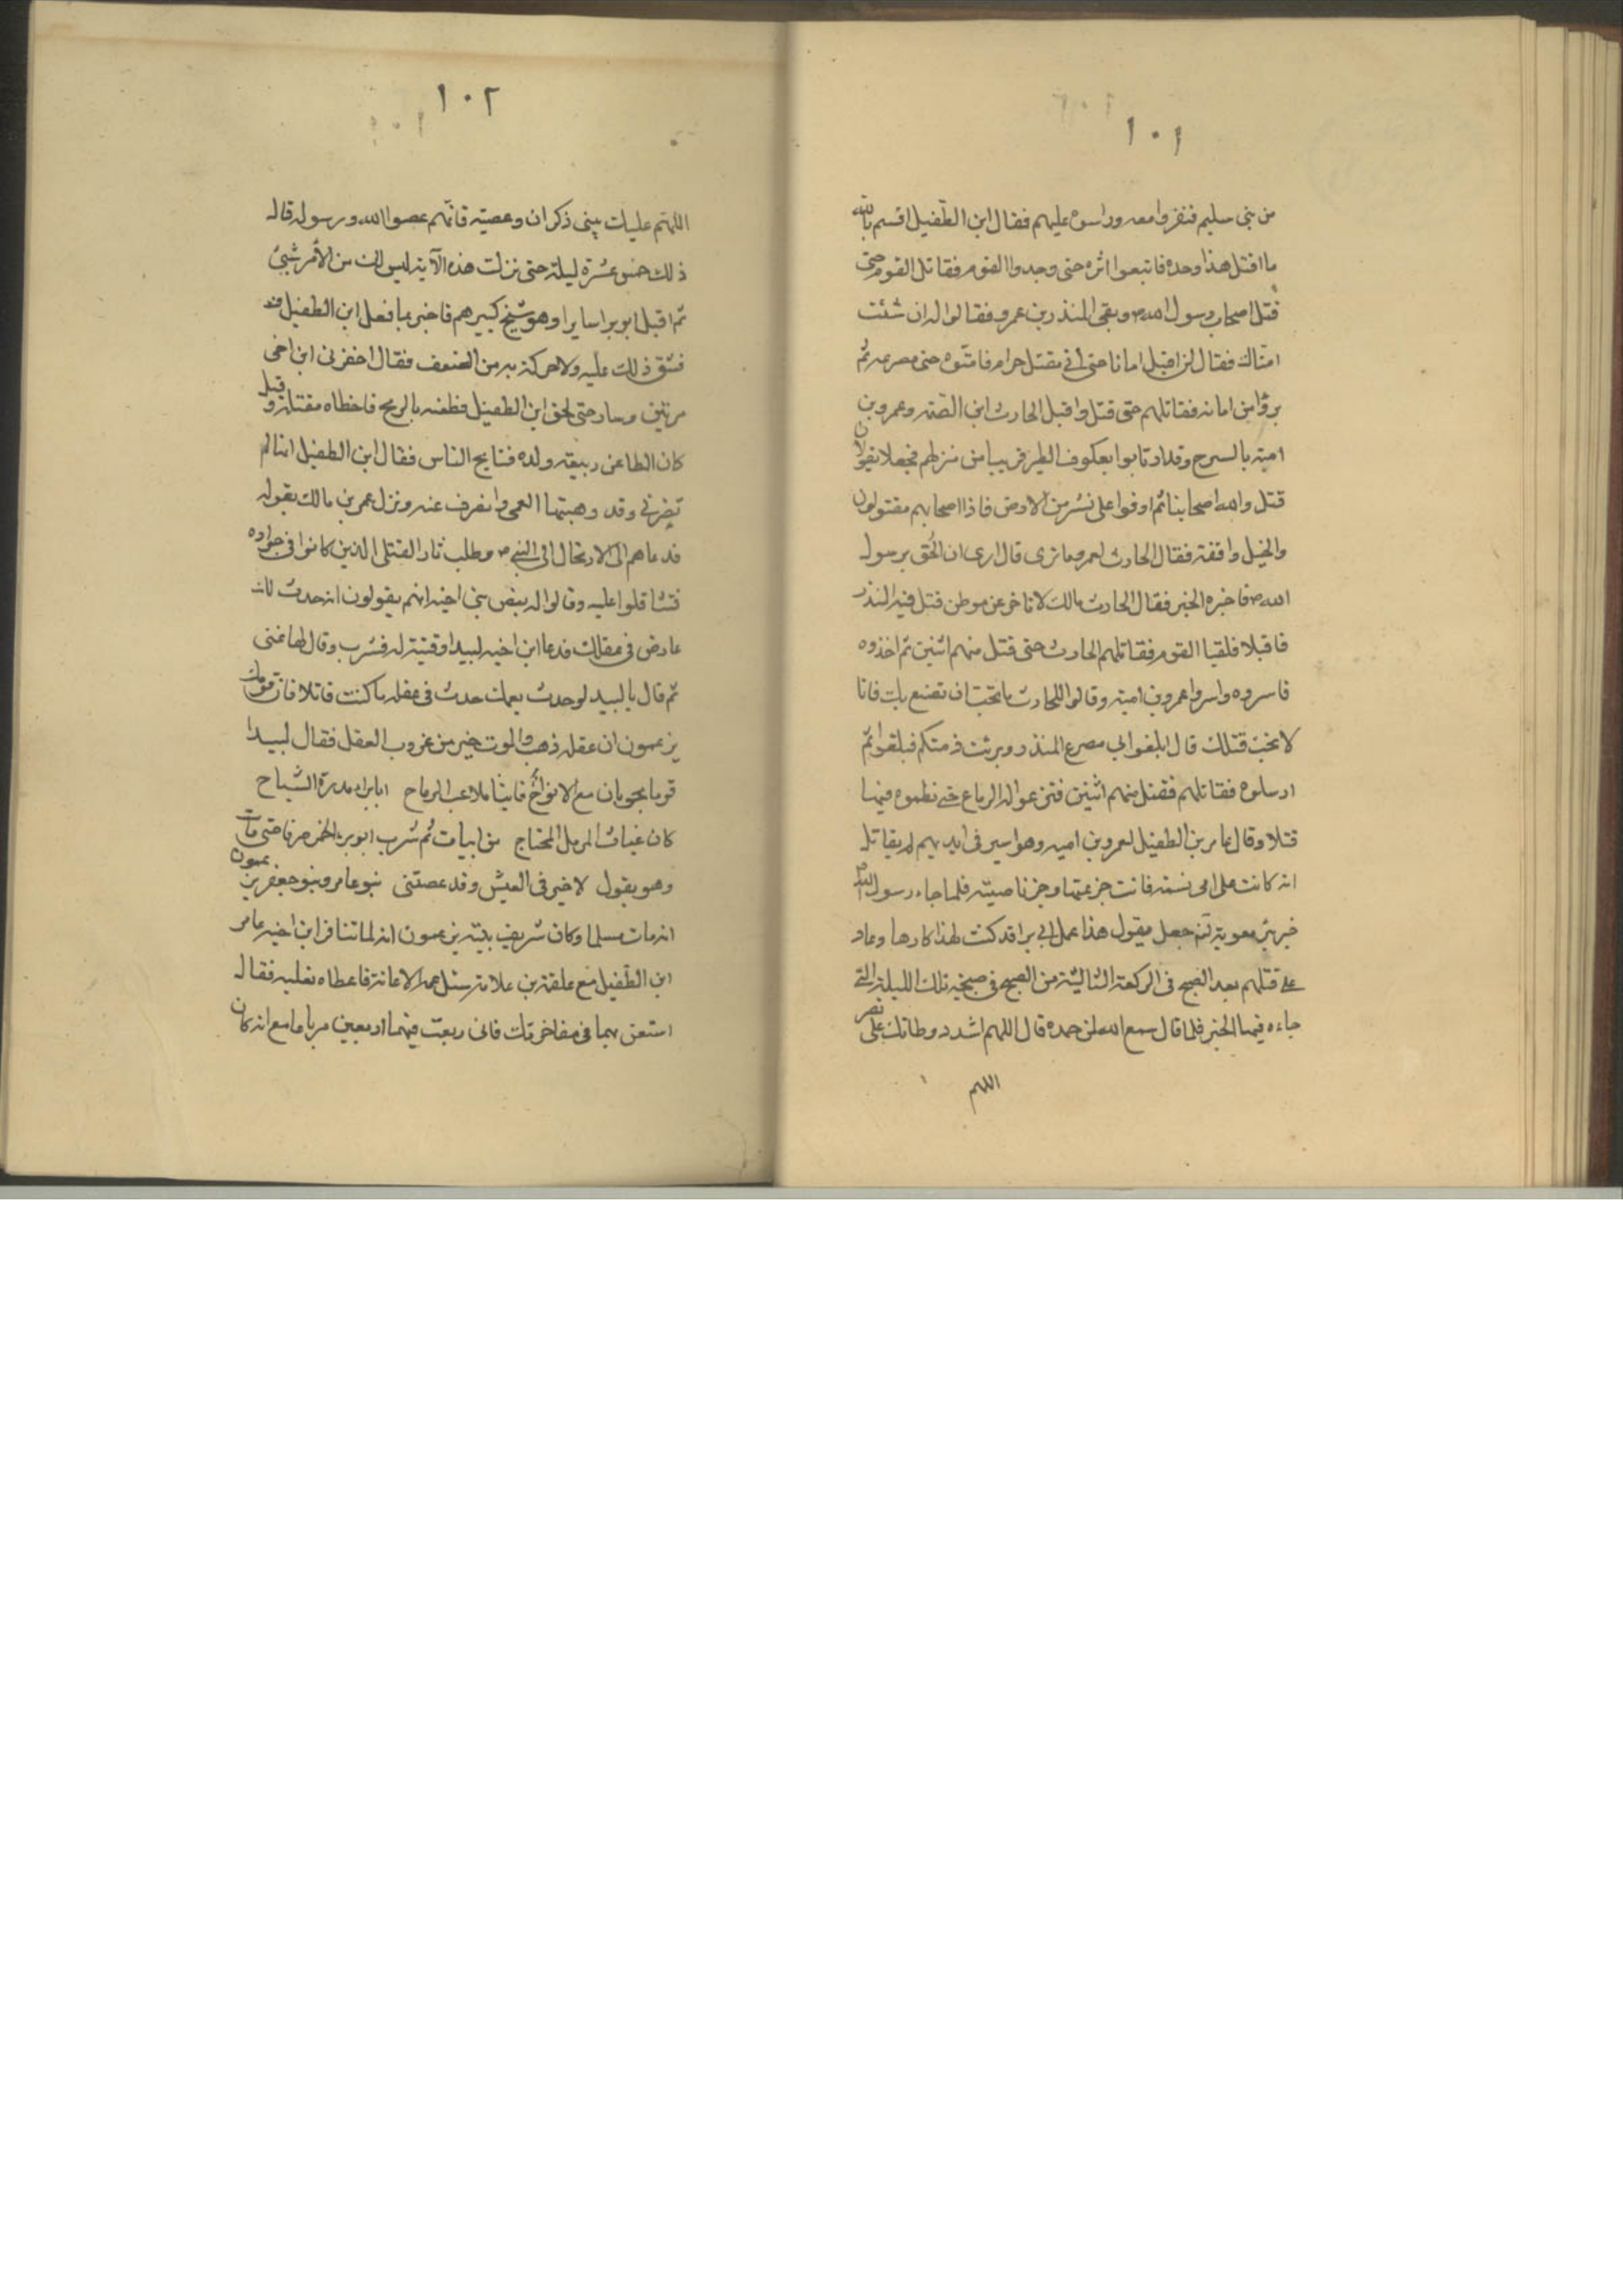 ١٠١
من بنى سليم فنفروا معه وراسوه عليهم فقال ابن الطفيل اقسم بالله
ما اقتل هذا وحده فاتبعوا اثره حتى وجدوا القوم فقاتل القوم حتى
قتل اصحاب رسول الله ص وبقى المنذر بن عمرو فقالوا له ان شئت
امناك فقال لن اقبل امانا حتى اتى مقتل حرام فامنوه حتى مصرعه ثم
برؤا من امانه فقاتلهم حتى قتل واقبل الحارث ابن الصمه وعمرو بن
اميه بالسرح وقد ارتابوا بعكوف الطير قريبا من منزلهم فجعلا يقولان
قتل والله اصحابنا ثم اوفوا على نشر من الارض فاذا اصحابهم مقتولون
والخيل واقفة فقال الحارث لعمرو ما ترى قال ارى ان الحق برسول
الله ص فاخبره الخبر فقال الحارث مالك لا تاخر عن موطن قتل فيه المنذر
فاقبلا فلقيا القوم فقاتلهم الحارث حتى قتل منهم اثنين ثم اخذوه
فاسروه واسروا عمرو بن اميه وقالوا للحارث ما تحب ان نصنع بك فانا
لا نحب قتلك قال ابلغوا بي مصرع المنذر وبرئت ذمتكم فبلغوا ثم
ارسلوه فقاتلهم فقتل منهم اثنين فشرعوا له الرماح حتى نظموه فيها
قتلا وقال عامر بن الطفيل لعمرو بن اميه وهو اسير فى ايديهم لم يقاتل
انه كانت على امى نسمه فانت حر عنها وجز ناصيته فلما جاء رسول الله ص
خبر بئر معونة جعل يقول هذا عمل ابي برا قد كنت لهذا كارها وعاد
على قتلهم بعد الصبح فى الركعة الثانية من الصبح فى صبحية تلك الليلة التى
جاءه فيها الخبر فلما قال سمع الله لمن حمده قال اللهم اشدد وطاتك على مضر
اللهم
١٠٢
اللهم عليك ببنى ذكوان وعصيه فانهم عصوا الله ورسوله قال
ذلك خمس عشرة ليلة حتى نزلت هذه الآية ليس لك من الأمر شيئ
ثم اقبل ابو برا سايرا وهو شيخ كبير هم فاخبر بما فعل ابن الطفيل
فشق ذلك عليه ولا حركة به من الضعف فقال اخفرنى ابن اخى
مرتين وسار حتى لحق ابن الطفيل فطعنه بالرمح فاخطاه مقتله وقيل
كان الطاعن ربيعه ولده فتصايح الناس فقال ابن الطفيل انها لم
تضرنى وقد وهبتها لعمى وانصرف عنه ونزل عمر بن مالك بقوله
فدعاهم الى الارتحال الى النبى ص وطلب ثار القتلى الذين كانوا فى جواره
فتثاقلوا عليه وقالوا له بعض بنى اخيه انهم يقولون انه حدث لك
عارض فى عقلك فدعا ابن اخيه لبيدا وقينة له فشرب وقال لها غنى
ثم قال يا لبيد لو حدث بعمك حدث فى عقله ما كنت قائلا فان قومك
يزعمون ان عقله ذهب والموت خير من عزوب العقل فقال لبيدا
قوما تجوبان مع الانواح فابنا ملاعب الرماح ابا برا مدرة الشياح
كان غياث المرمل المحتاج من ابيات ثم شرب ابو براء الخمر صرفا حتى مات
وهو يقول لا خير فى العيش وقد عصتنى بنو عامر وبنو جعفر يزعمون
انه مات مسلما وكان شريف بيته يزعمون انه لما تنافر ابن اخيه عامر
ابن الطفيل مع علقمة بن علاثه سئل عمه الاعانة فاعطاه نعليه فقال
استعن بهما فى مفاخرتك فانى ربعت فيهما اربعين مرباعا مع انه كان